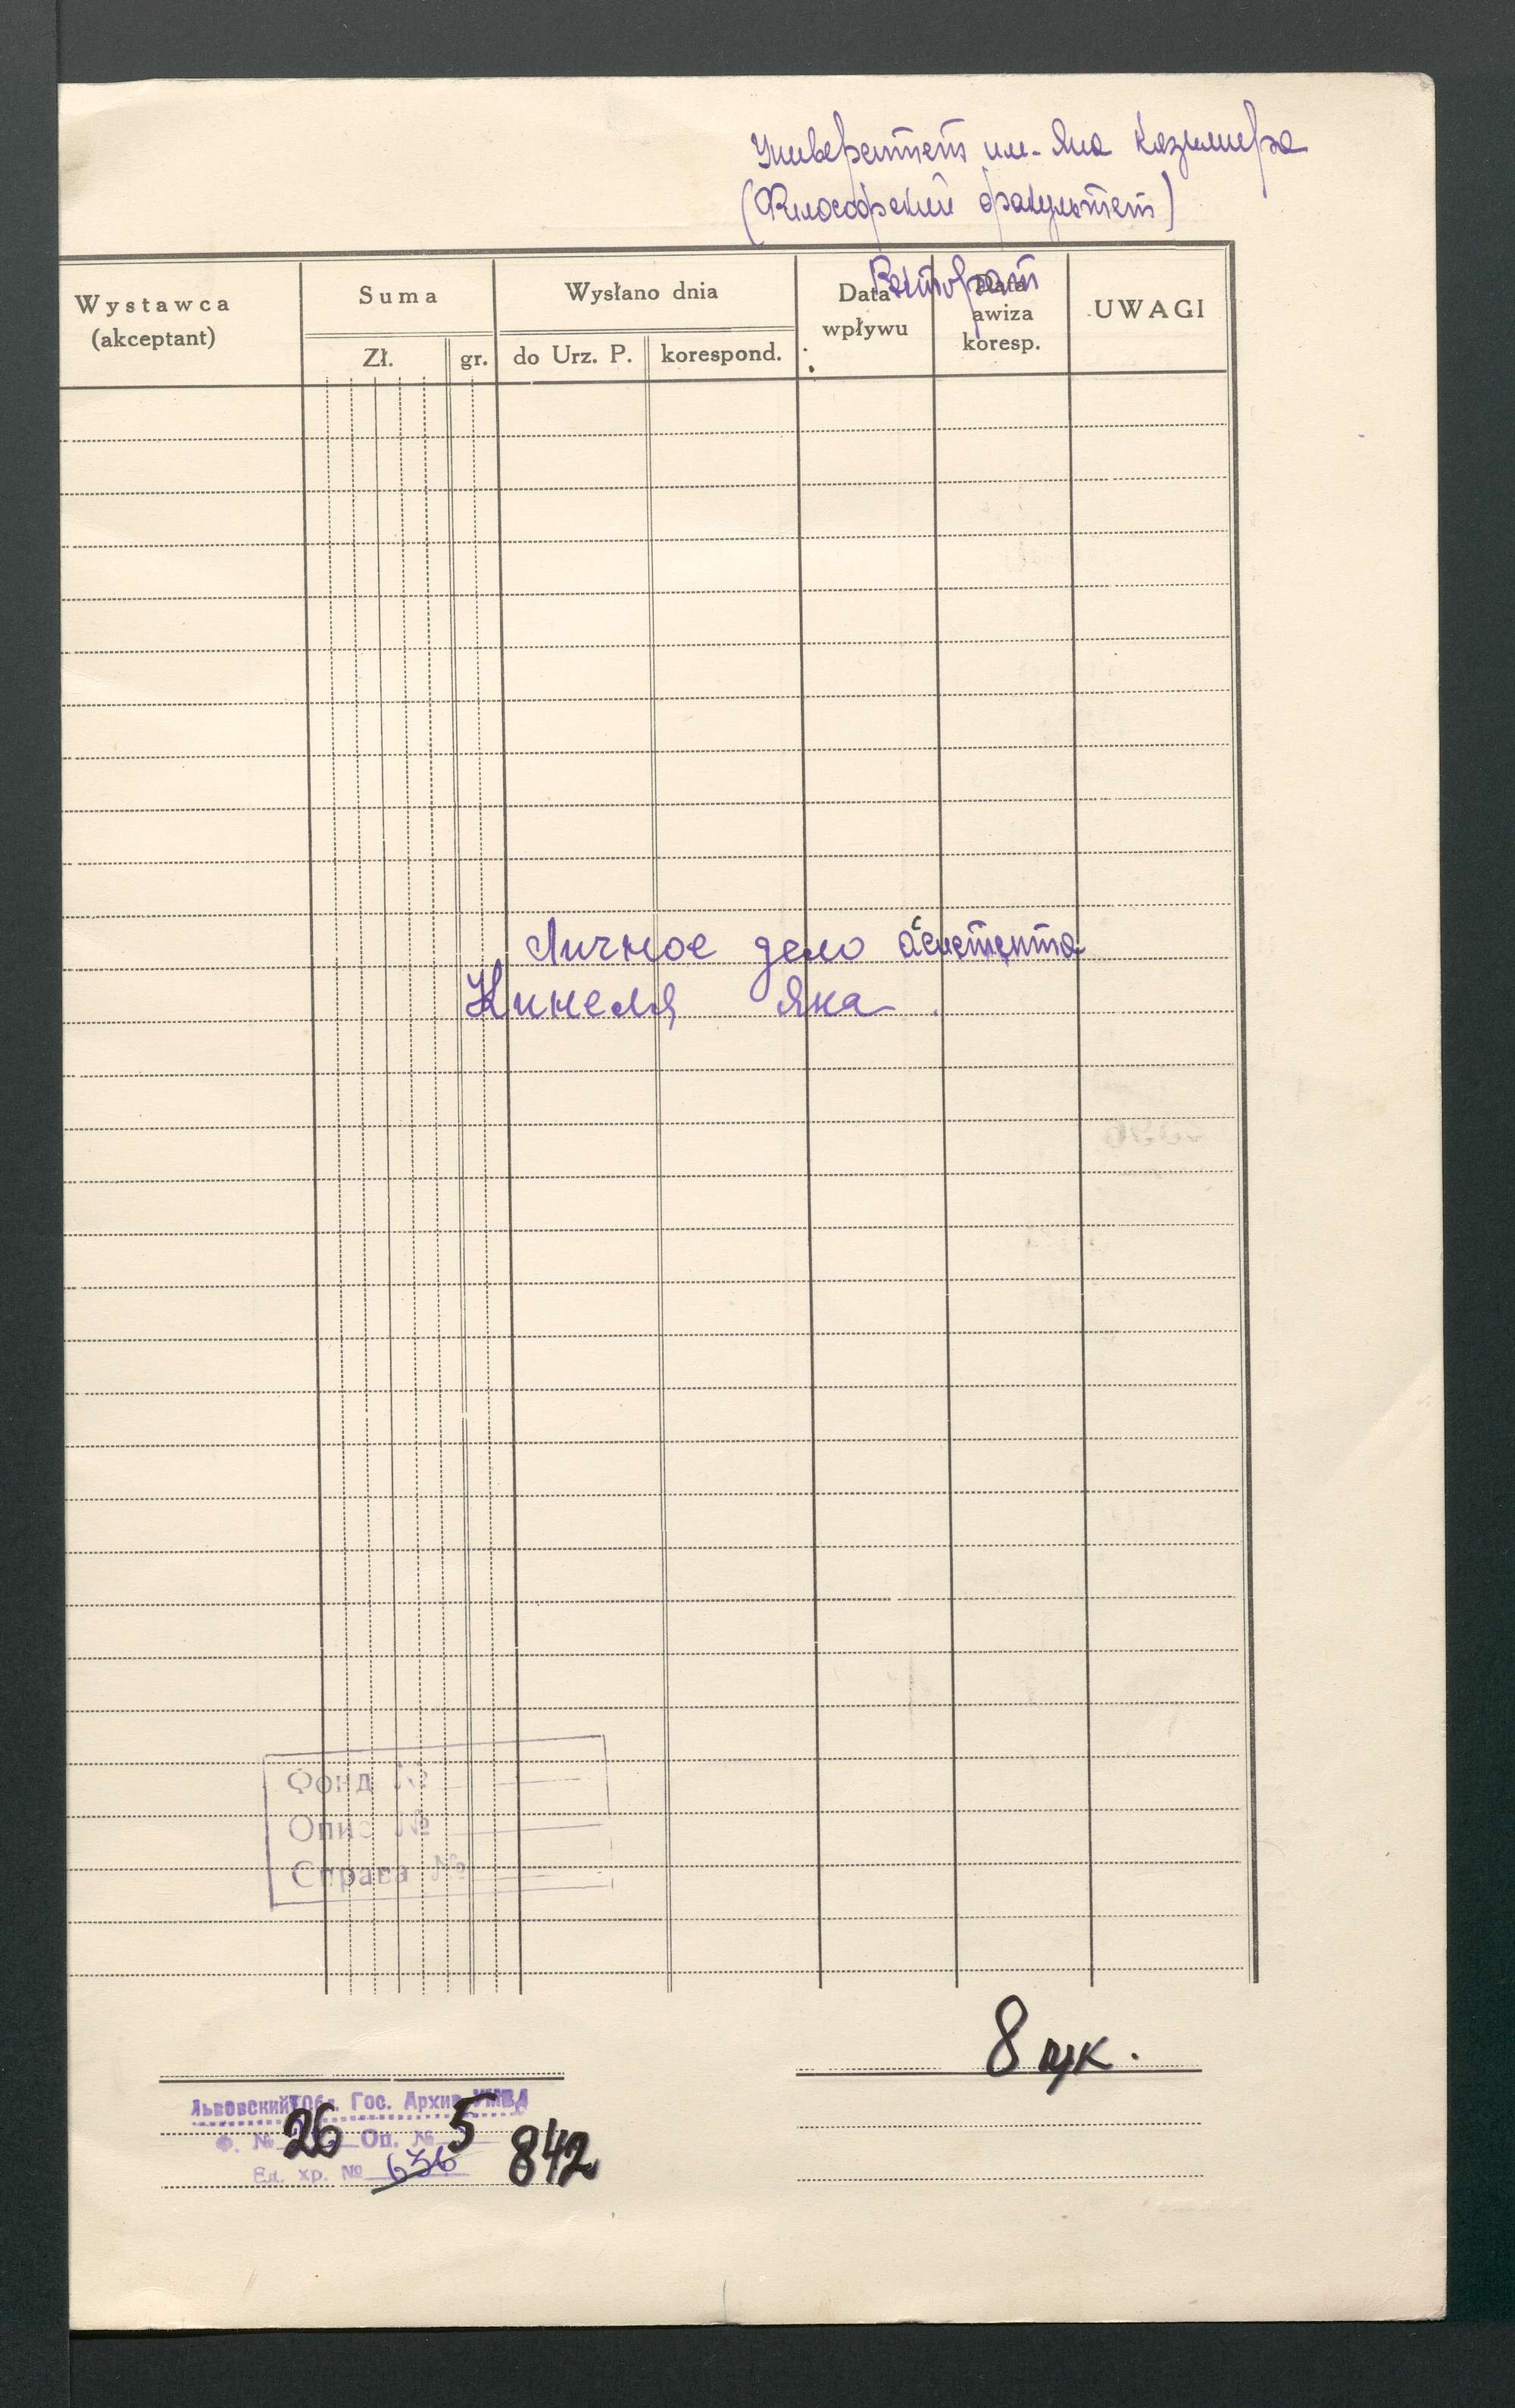 Университет им. Яна Казимира
(Философский факультет)
Ректорат
Wystawca
(akceptant)
Suma
Zł.
gr.
Wysłano dnia
do Urz. P.
korespond.
Data
wpływu
Data
awiza
koresp.
UWAGI
Личное дело асистента
Кинеля Яна.
Фонд №
Опис №
Справа №
8 арк.
Львовский Обл. Гос. Архив УМВД
Ф. № 26 Оп. № 5
Ед. хр. № 636 842